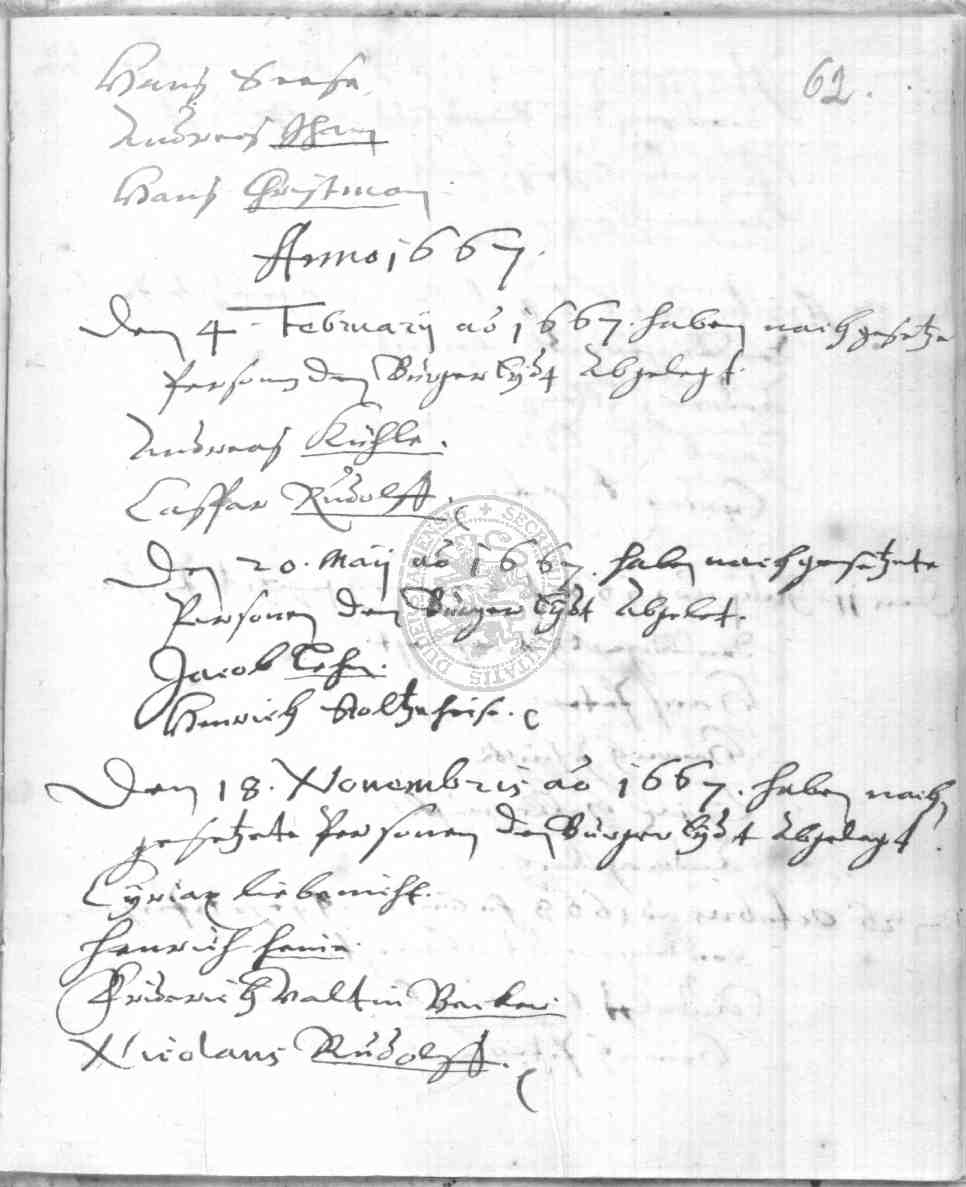 62.
Hanß
Andreas
Hanß Christman
Anno 1667.
Den 4 Februarij ao 1667. haben nachgesetzte
Personen den Bürger Eydt Abgelegt.
Andreas Kühle.
Caspar Rudolff.
Den 20. Maij ao 1667. haben nachgesetzete
Personen den Bürger Eydt Abgelet.
Jacob
Henrich
Den 18. Novembris ao 1667. haben nach
gesetzete Personen den Bürger Eydt Abgelegt.
Cyriax Liebenicht.
Henrich
Friderich Valtin Becker.
Nicolaus Rudolff.